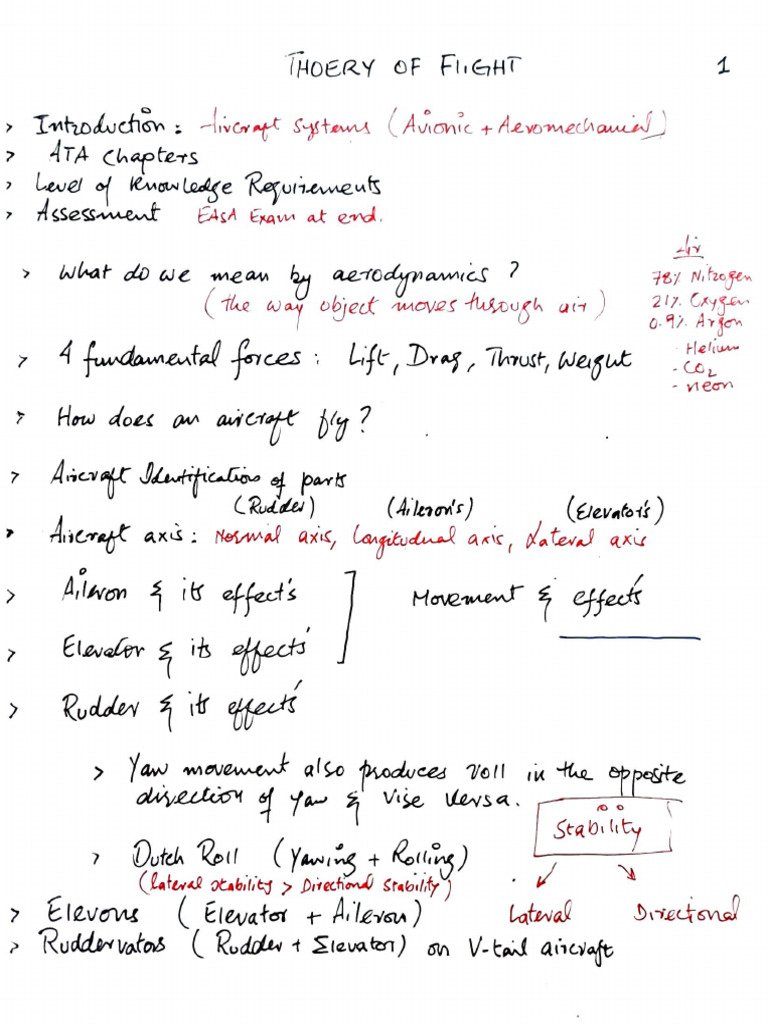 THOERY OF FlIGHT 1
> Introduction: Aircraft Systems (Avionic + Aeromechanical)
> ATA Chapters
> Level of Knowledge Requirements
> Assessment EASA Exam at end.
> What do we mean by aerodynamics ?
(the way object moves through air)
Air
78% Nitrogen
21% Oxygen
0.9% Argon
- Helium
- CO2
- neon
> 4 fundamental forces : Lift, Drag, Thrust, Weight
> How does an aircraft fly?
> Aircraft Identification of parts
(Rudder) (Aileron's) (Elevator's)
> Aircraft axis: Normal axis, Longitudual axis, Lateral axis
> Aileron & its effect's
> Elevator & its effects'
Movement & effects'
> Rudder & its effects'
> Yaw movement also produces roll in the opposite
direction of yaw & Vise Versa.
Stability
> Dutch Roll (Yawing + Rolling)
(lateral stability > Directional Stability)
Lateral Directional
> Elevons (Elevator + Aileron)
> Ruddervators (Rudder + Elevator) on V-tail aircraft